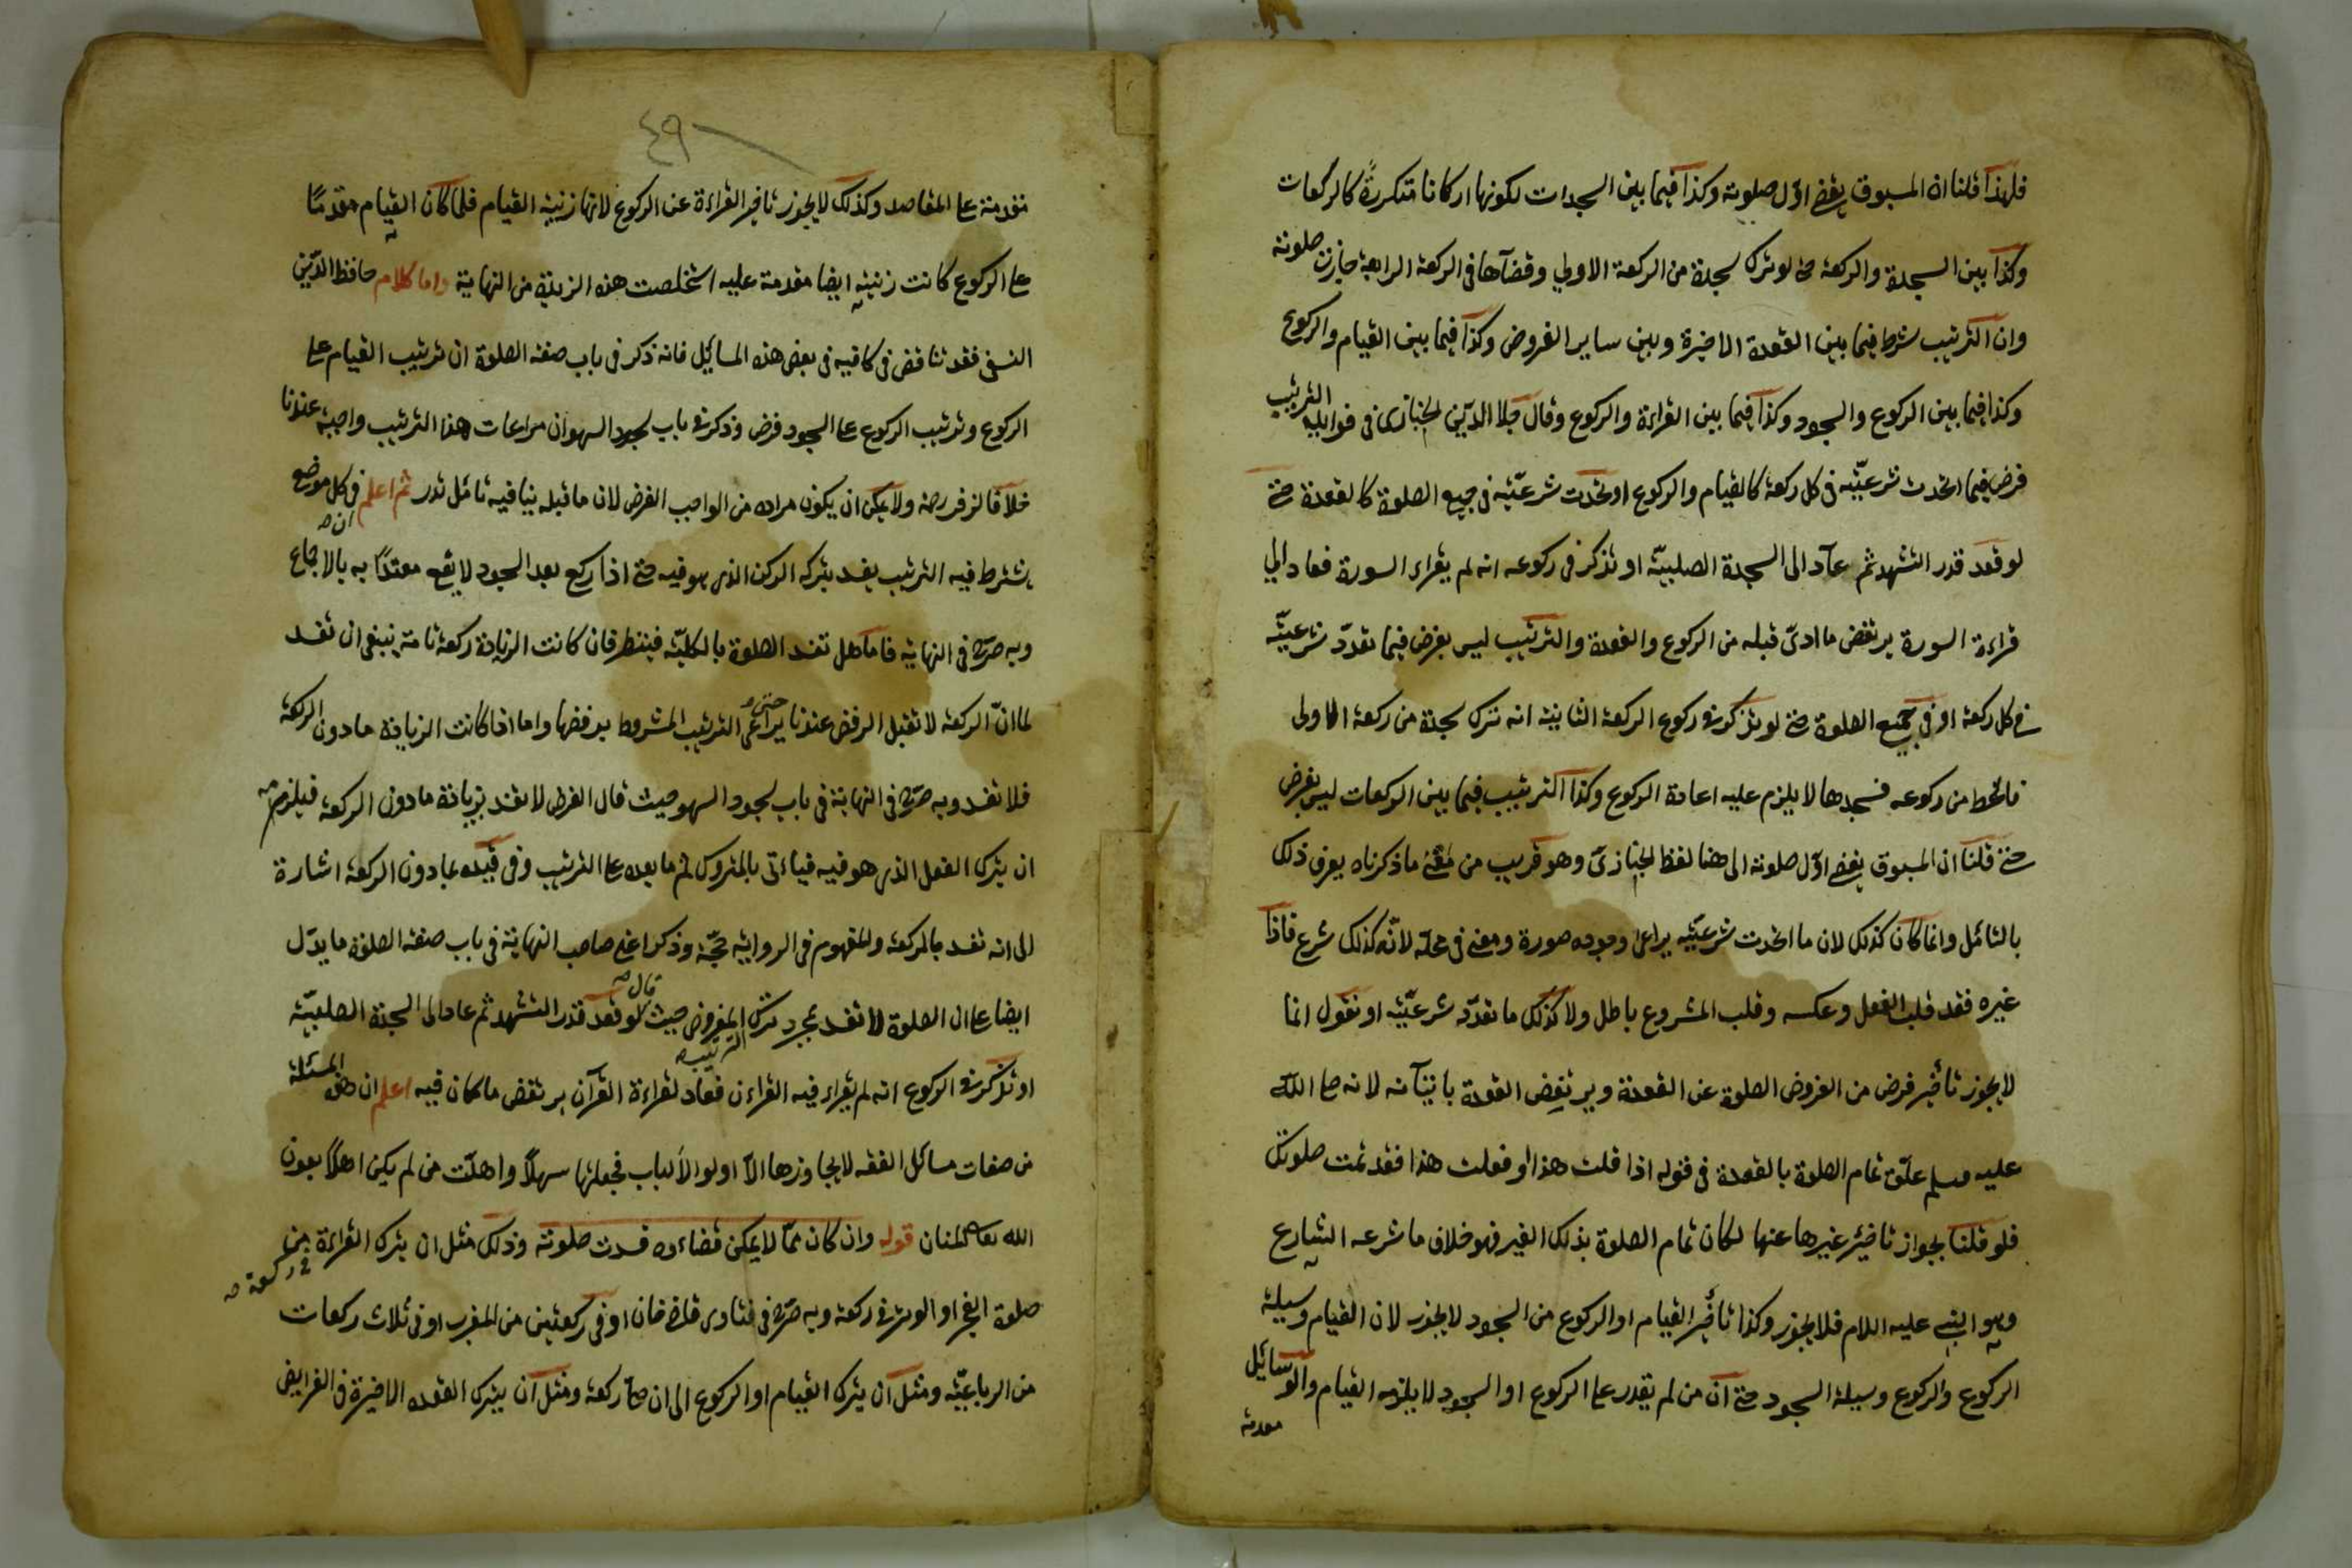 فلهذا قلنا ان المسبوق يقضي اول صلوته وكذا فيما بين السجدات لكونها اركانا متكررة كالركعات
وكذا بين السجدة والركعة حتى لو ترك سجدة من الركعة الاولى وقضاها فى الركعة الرابعة جازت صلوته
وان الترتيب شرط فيما بين القعدة الاخيرة وبين ساير الفروض وكذا فيما بين القيام والركوع
وكذا فيما بين الركوع والسجود وكذا فيما بين القراءة والركوع وقال جلال الدين الخبازى فى فوايده الترتيب
فرض فيما اتحدت شرعيته فى كل ركعة كالقيام والركوع او اتحدت شرعيته فى جميع الصلوة كالقعدة حتى
لو قعد قدر التشهد ثم عاد الى السجدة الصلبية او تذكر فى ركوعه انه لم يقراء السورة فعاد الى
قراءة السورة يرتفض ما ادى قبله من الركوع والقعدة والترتيب ليس بفرض فيما تعدد شرعيته
فى كل ركعة او فى جميع الصلوة حتى لو تذكر فى ركوع الركعة الثانية انه ترك سجدة من ركعة الاولى
فانحط من ركوعه فسجدها لا يلزم عليه اعادة الركوع وكذا الترتيب فيما بين الركعات ليس بفرض
حتى قلنا ان المسبوق يقضي اول صلوته الى هنا لفظ الخبازى وهو قريب من معنى ما ذكرناه يعرف ذلك
بالتامل وانما كان كذلك لان ما اتحدت شرعيته يراعى وجوده صورة ومعنى فى محله لانه كذلك شرع فاذا
غيره فقد قلب الفعل وعكسه وقلب المشروع باطل ولا كذلك ما تعدد شرعيته او نقول انما
لا يجوز تأخير فرض من الفروض الصلوة عن القعدة ويرتفض القعدة باتيانه لانه صلى الله
عليه وسلم علق تمام الصلوة بالقعدة فى قوله اذا قلت هذا او فعلت هذا فقد تمت صلوتك
فلو قلنا بجواز تاخير غيرها عنها لكان تمام الصلوة بذلك الغير فهو خلاف ما شرعه الشارع
وهو النبي عليه السلام فلا يجوز وكذا تأخير القيام او الركوع من السجود لا يجوز لان القيام وسيلة
الركوع والركوع وسيلة السجود حتى ان من لم يقدر على الركوع او السجود لا يلزمه القيام والوسائل
مقدمة
٤٩
مقدمة على المقاصد وكذلك لا يجوز تاخير القراءة عن الركوع لانها زينة القيام فلما كان القيام مقدما
على الركوع كانت زينته ايضا مقدمة عليه استخلصت هذه الزبدة من النهاية واما كلام حافظ الدين
النسفى فقد تناقض فى كافيه فى بعض هذه المسايل فانه ذكر فى باب صفة الصلوة ان ترتيب القيام على
الركوع وترتيب الركوع على السجود فرض وذكر فى باب سجود السهو ان مراعات هذا الترتيب واجبة عندنا
خلافا لزفر رحمه ولا يمكن ان يكون مراده من الواجب الفرض لان ما قبله ينافيه تامل تدر ثم اعلم ان فى كل موضع
يشترط فيه الترتيب يفسد بتركه الركن الذى هو فيه حتى اذا ركع بعد السجود لا يقع معتدا به بالاجماع
وبه صرح فى النهاية فاما هل تفسد الصلوة بالكلية فينظر فان كانت الزيادة ركعة تامة ينبغى ان تفسد
لما ان الركعة لا تقبل الرفض عندنا حتى يراعى الترتيب المشروط برفضها واما اذا كانت الزيادة ما دون الركعة
فلا تفسد وبه صرح فى النهاية فى باب سجود السهو حيث قال الفرض لا تفسد بزيادة ما دون الركعة فيلزمه
ان يترك الفعل الذى هو فيه فياءتى بالمتروك ثم ما بعده على الترتيب وفى قيده بما دون الركعة اشارة
الى انه تفسد بالركعة والمفهوم فى الرواية حجة وذكر اعنى صاحب النهاية فى باب صفة الصلوة ما يدل
ايضا على ان الصلوة لا تفسد بمجرد ترك الترتيب المفروض حيث قال لو قعد قدر التشهد ثم عاد الى السجدة الصلبية
او تذكر فى الركوع انه لم يقراء فيه القراءن فعاد لقراءة القرآن يرتفض ما كان فيه اعلم ان هذه المسئلة
من صفات مسائل الفقه لا يجاوزها الا اولو الالباب فجعلتها سهلا واهلت من لم يكن اهلا بعون
الله تعالى المنان قوله وان كان مما لا يمكن قضاءه فسدت صلوته وذلك مثل ان يترك القراءة من
صلوة الفجر او الوتر فى ركعة وبه صرح فى فتاوى قاضيخان او فى ركعتين من المغرب او فى ثلاث ركعات
فى ركعة
من الرباعية ومثل ان يترك القيام او الركوع الى ان صلى ركعة ومثل ان يترك القعده الاخيرة فى الفرايض